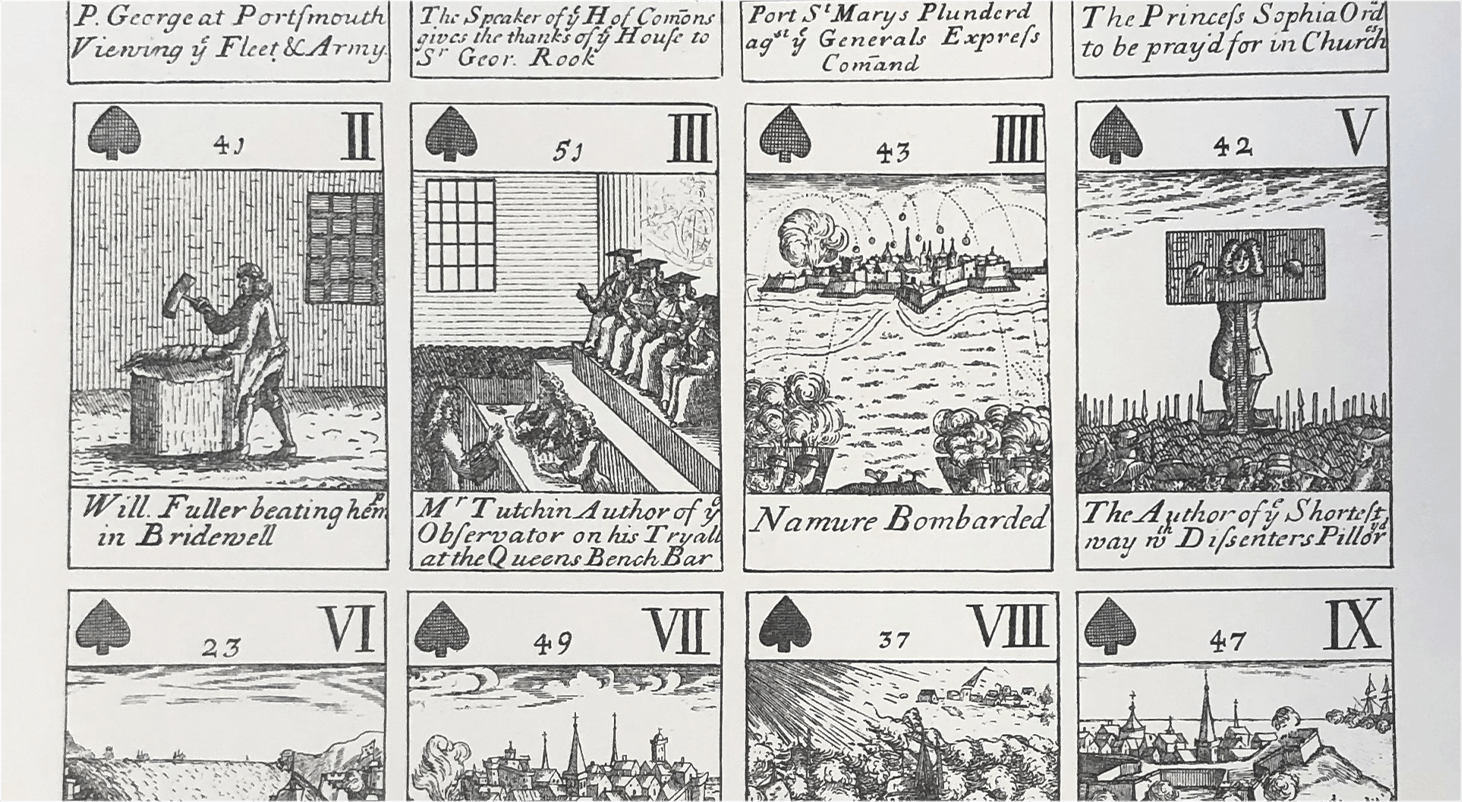 P. George at Portſmouth
Viewing yͤ Fleet & Army
The Speaker of yͤ H of Com̄ons
gives the thanks of yͤ Houſe to
Sʳ Geor. Rook
Port Sᵗ Marys Plunderd
agˢᵗ yͤ Generals Expreſs
Com̄and
The Princeſs Sophia Ordᵈ
to be pray'd for in Churchᵉˢ
41 II
Will. Fuller beating hemᵖ
in Bridewell
51 III
Mʳ Tutchin Author of yͤ
Obſervator on his Tryall
at the Queens Bench Bar
43 IIII
Namure Bombarded
42 V
The Author of yͤ Shorteſt
way wᵗʰ Diſsenters Pillorʸᵈ
23 VI
49 VII
37 VIII
47 IX